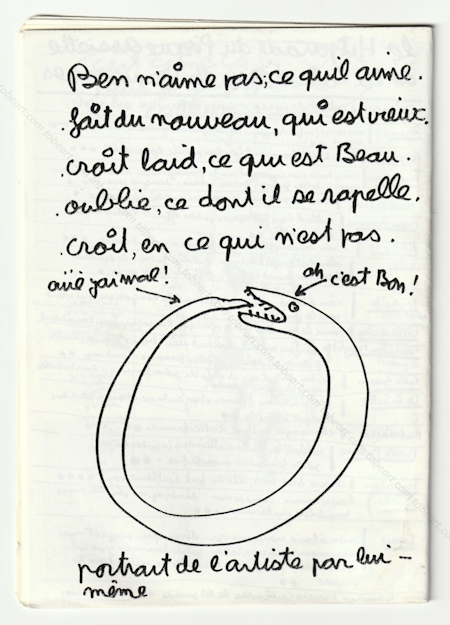 Ben n'aime pas; ce qu'il aime.
. fait du nouveau, qui est vieux.
. croit laid, ce qui est Beau.
. oublie, ce dont il se rapelle.
. croit, en ce qui n'est pas.
aïïe j'ai mal!
ah c'est Bon!
portrait de l'artiste par lui-
même